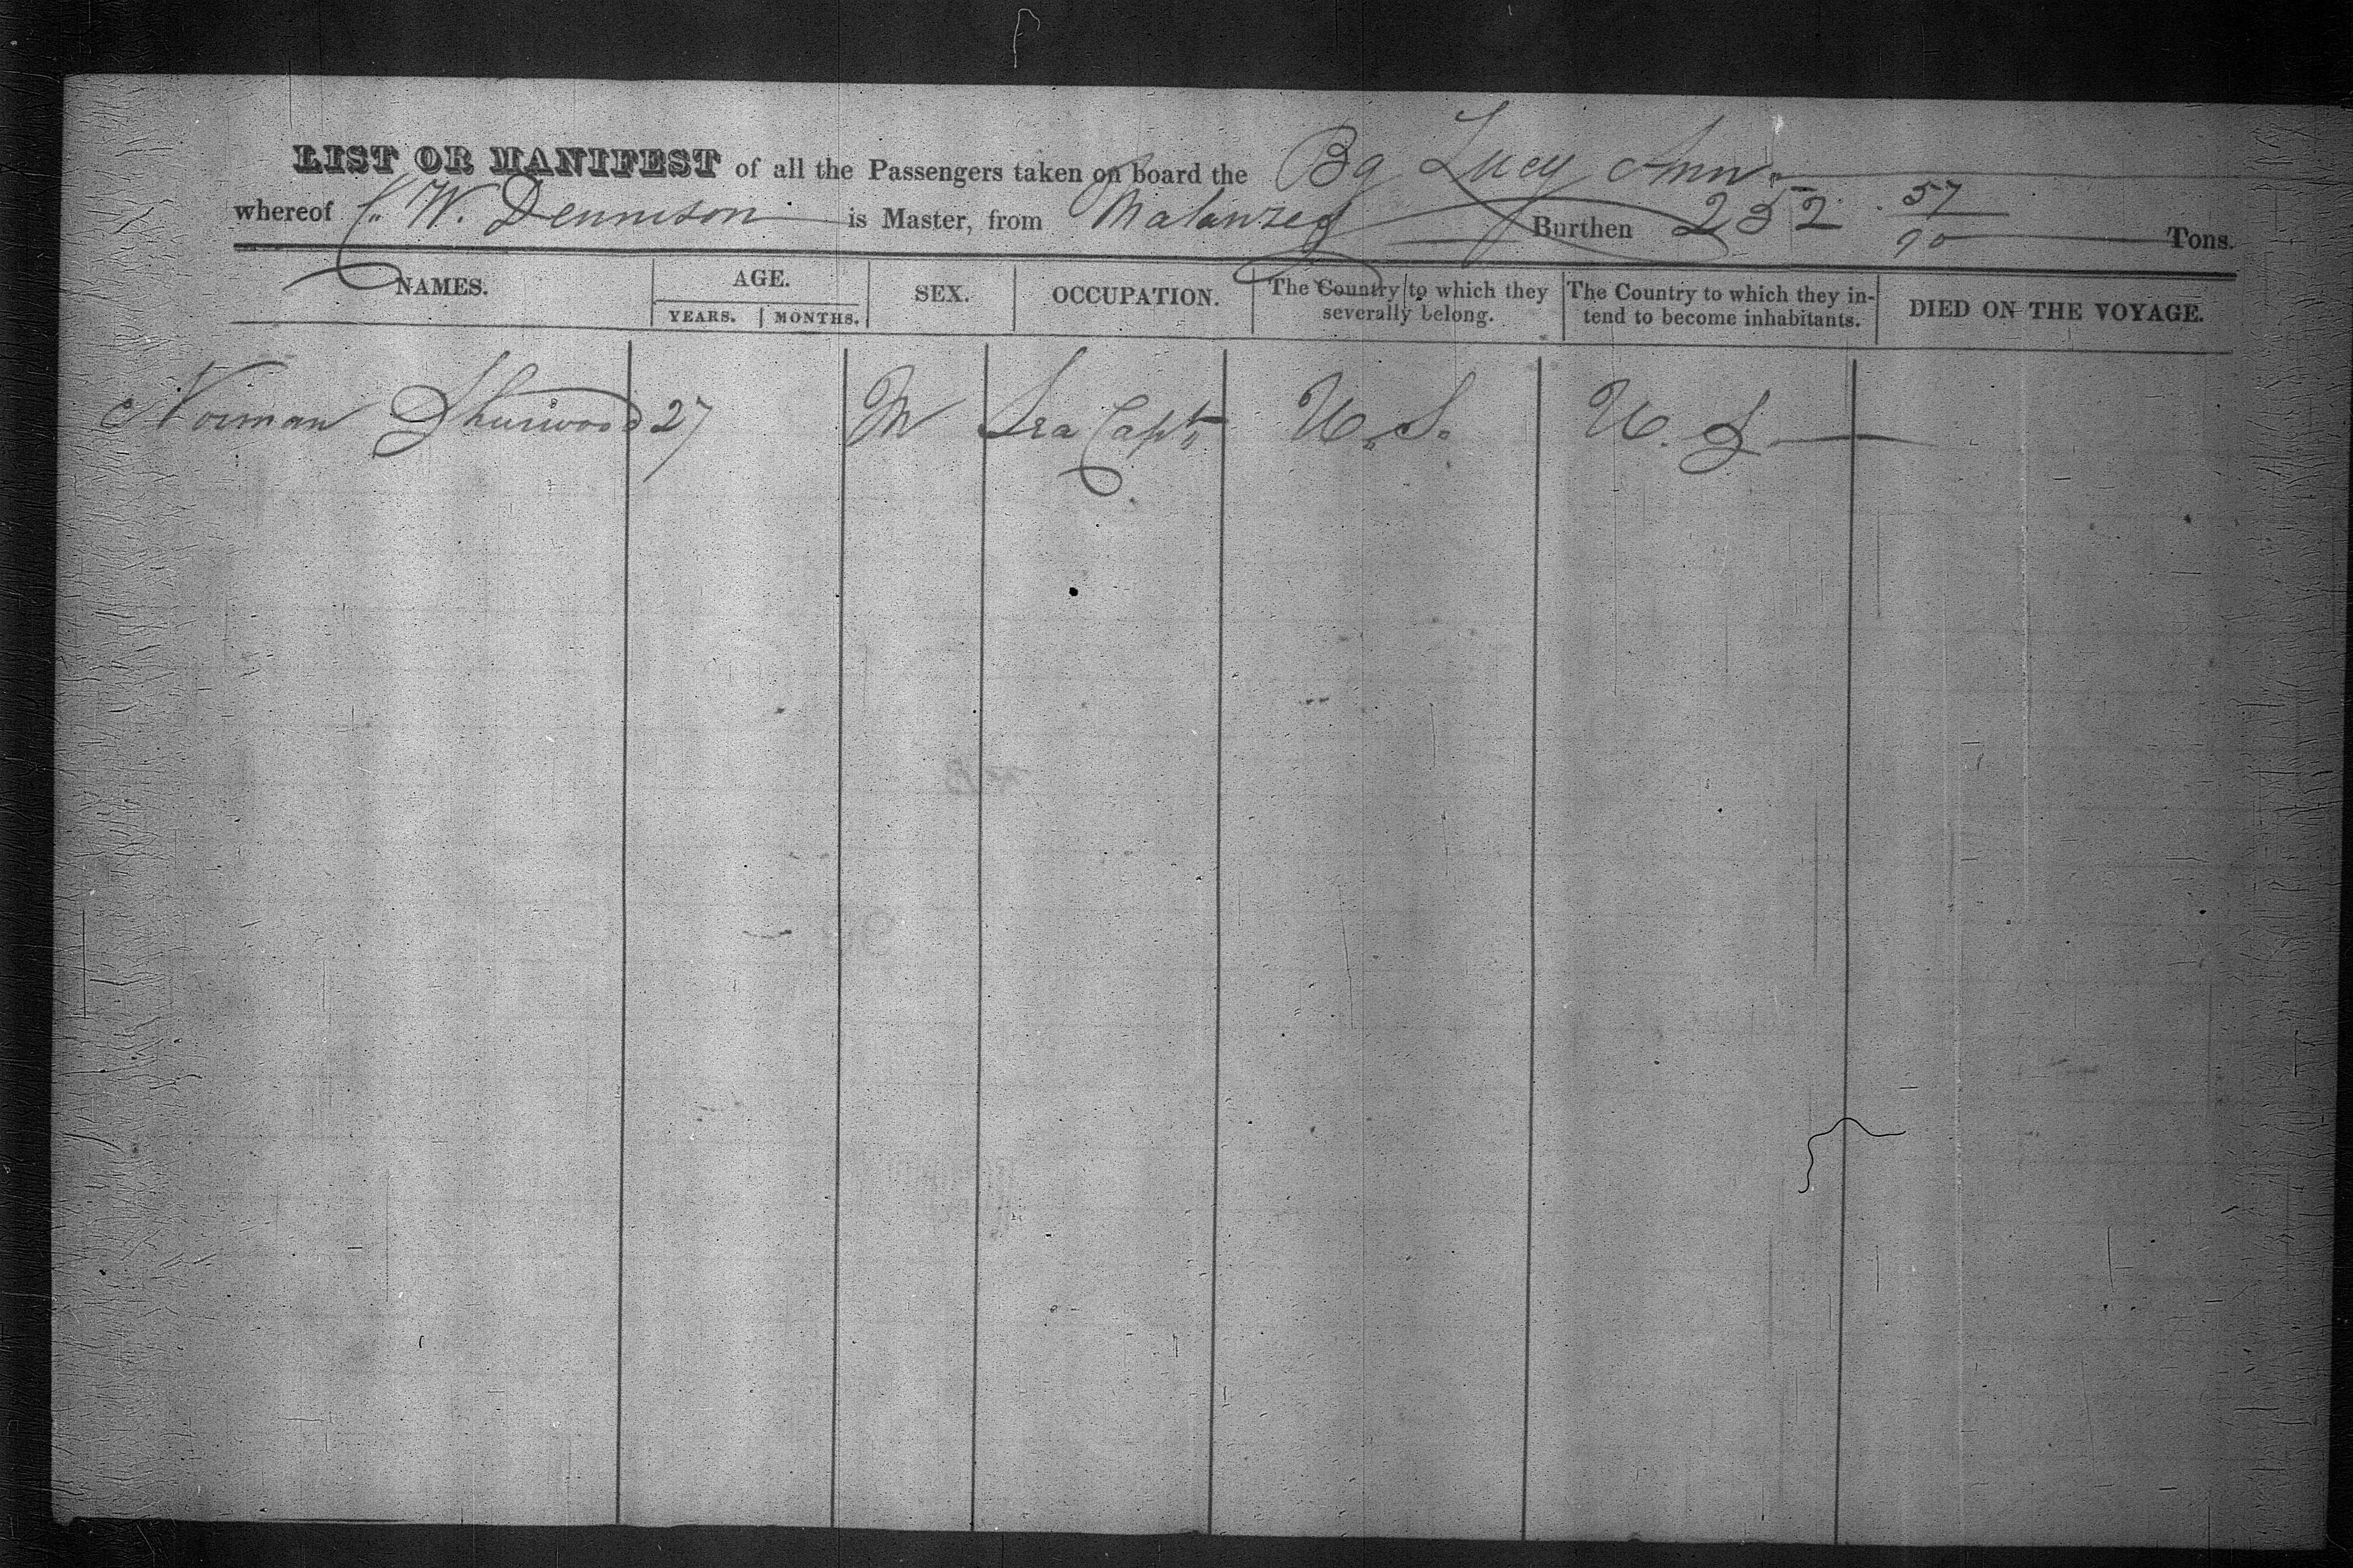 LIST OR MANIFEST of all the Passengers taken on board the Bg Lucy Ann
whereof C. W. Dennison is Master, from Matanzas Burthen 252 57/90 Tons.
NAMES. AGE. SEX. OCCUPATION. The Country to which they severally belong. The Country to which they intend to become inhabitants. DIED ON THE VOYAGE.
YEARS. MONTHS.
Norman Shurwood 27 M Sea Capt. U. S. U. S.